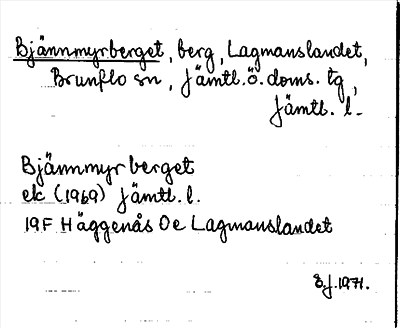 Bjännmyrberget, berg, Lagmanslandet,
Brunflo sn, Jämtl.ö.doms. tg,
Jämtl. l.
Bjännmyrberget
ek (1969) Jämtl.l.
19F Häggenås Oe Lagmanslandet
1971.